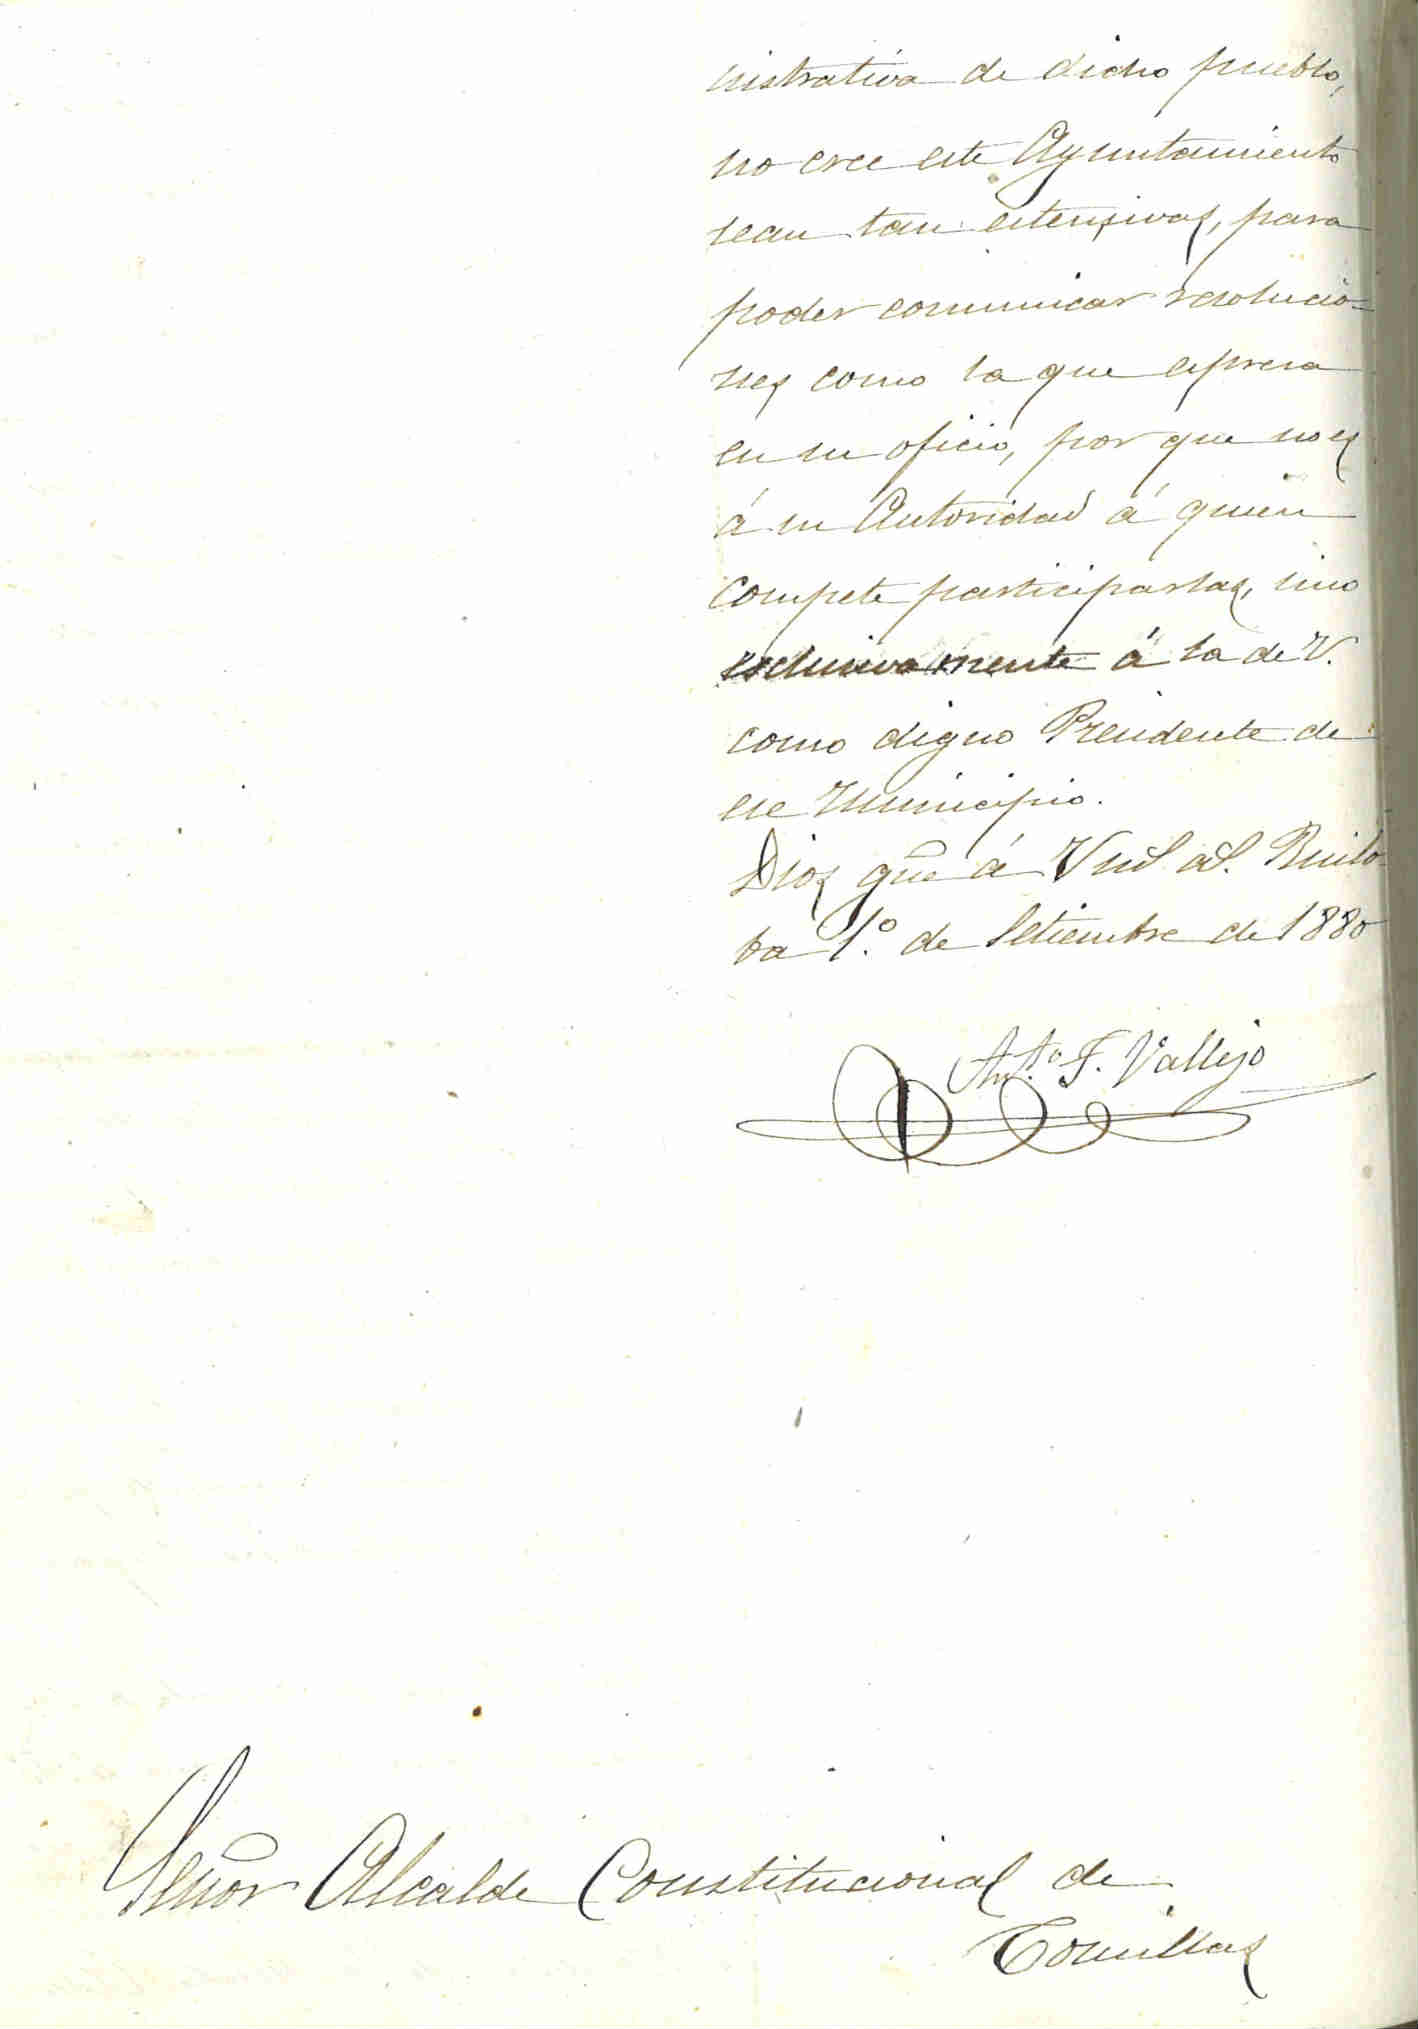 nistrativa de dicho pueblo,
no cree este Ayuntamiento
sean tan estensivas, para
poder comunicar resolucio-
nes como la que espresa
en su oficio, por que no es
á su Autoridad á quien
compete participarlas, sino
esclusivamente á la de V.
como digno Presidente de
ese Municipio.
Dios gue á V mS aS. Ruilo
ba 1.º de Setiembre de 1880
Ant.º F. Vallejo
Señor Alcalde Constitucional de
Comillas